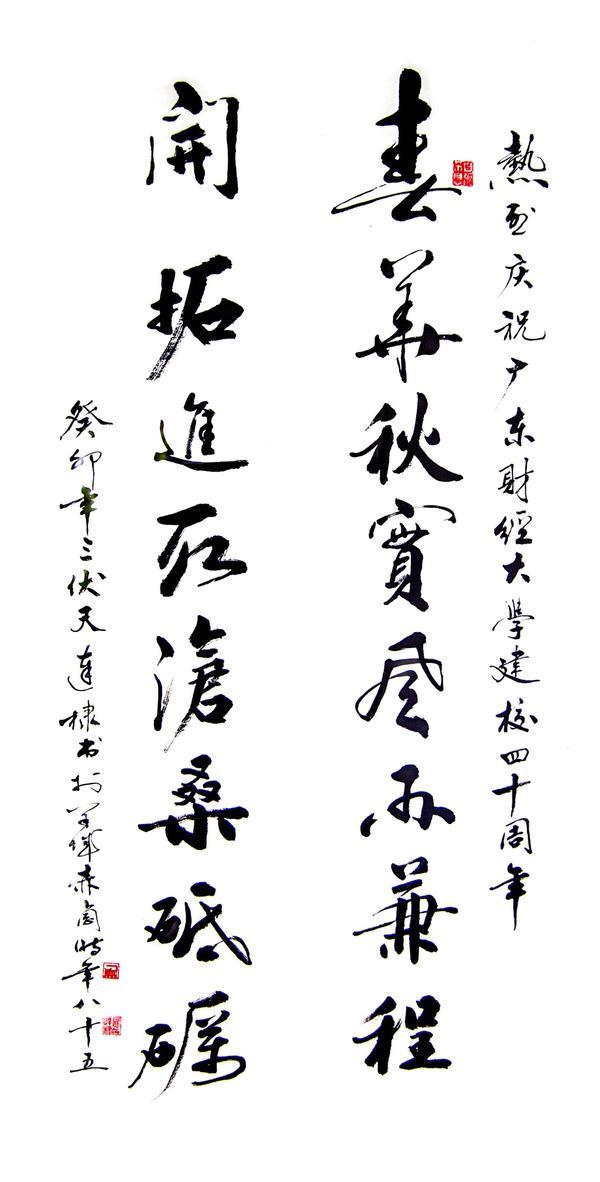 熱烈庆祝广东財經大學建校四十周年
春華秋實风雨兼程
開拓進取滄桑砥砺
癸卯年三伏天棣书於羊城赤崗時年八十五